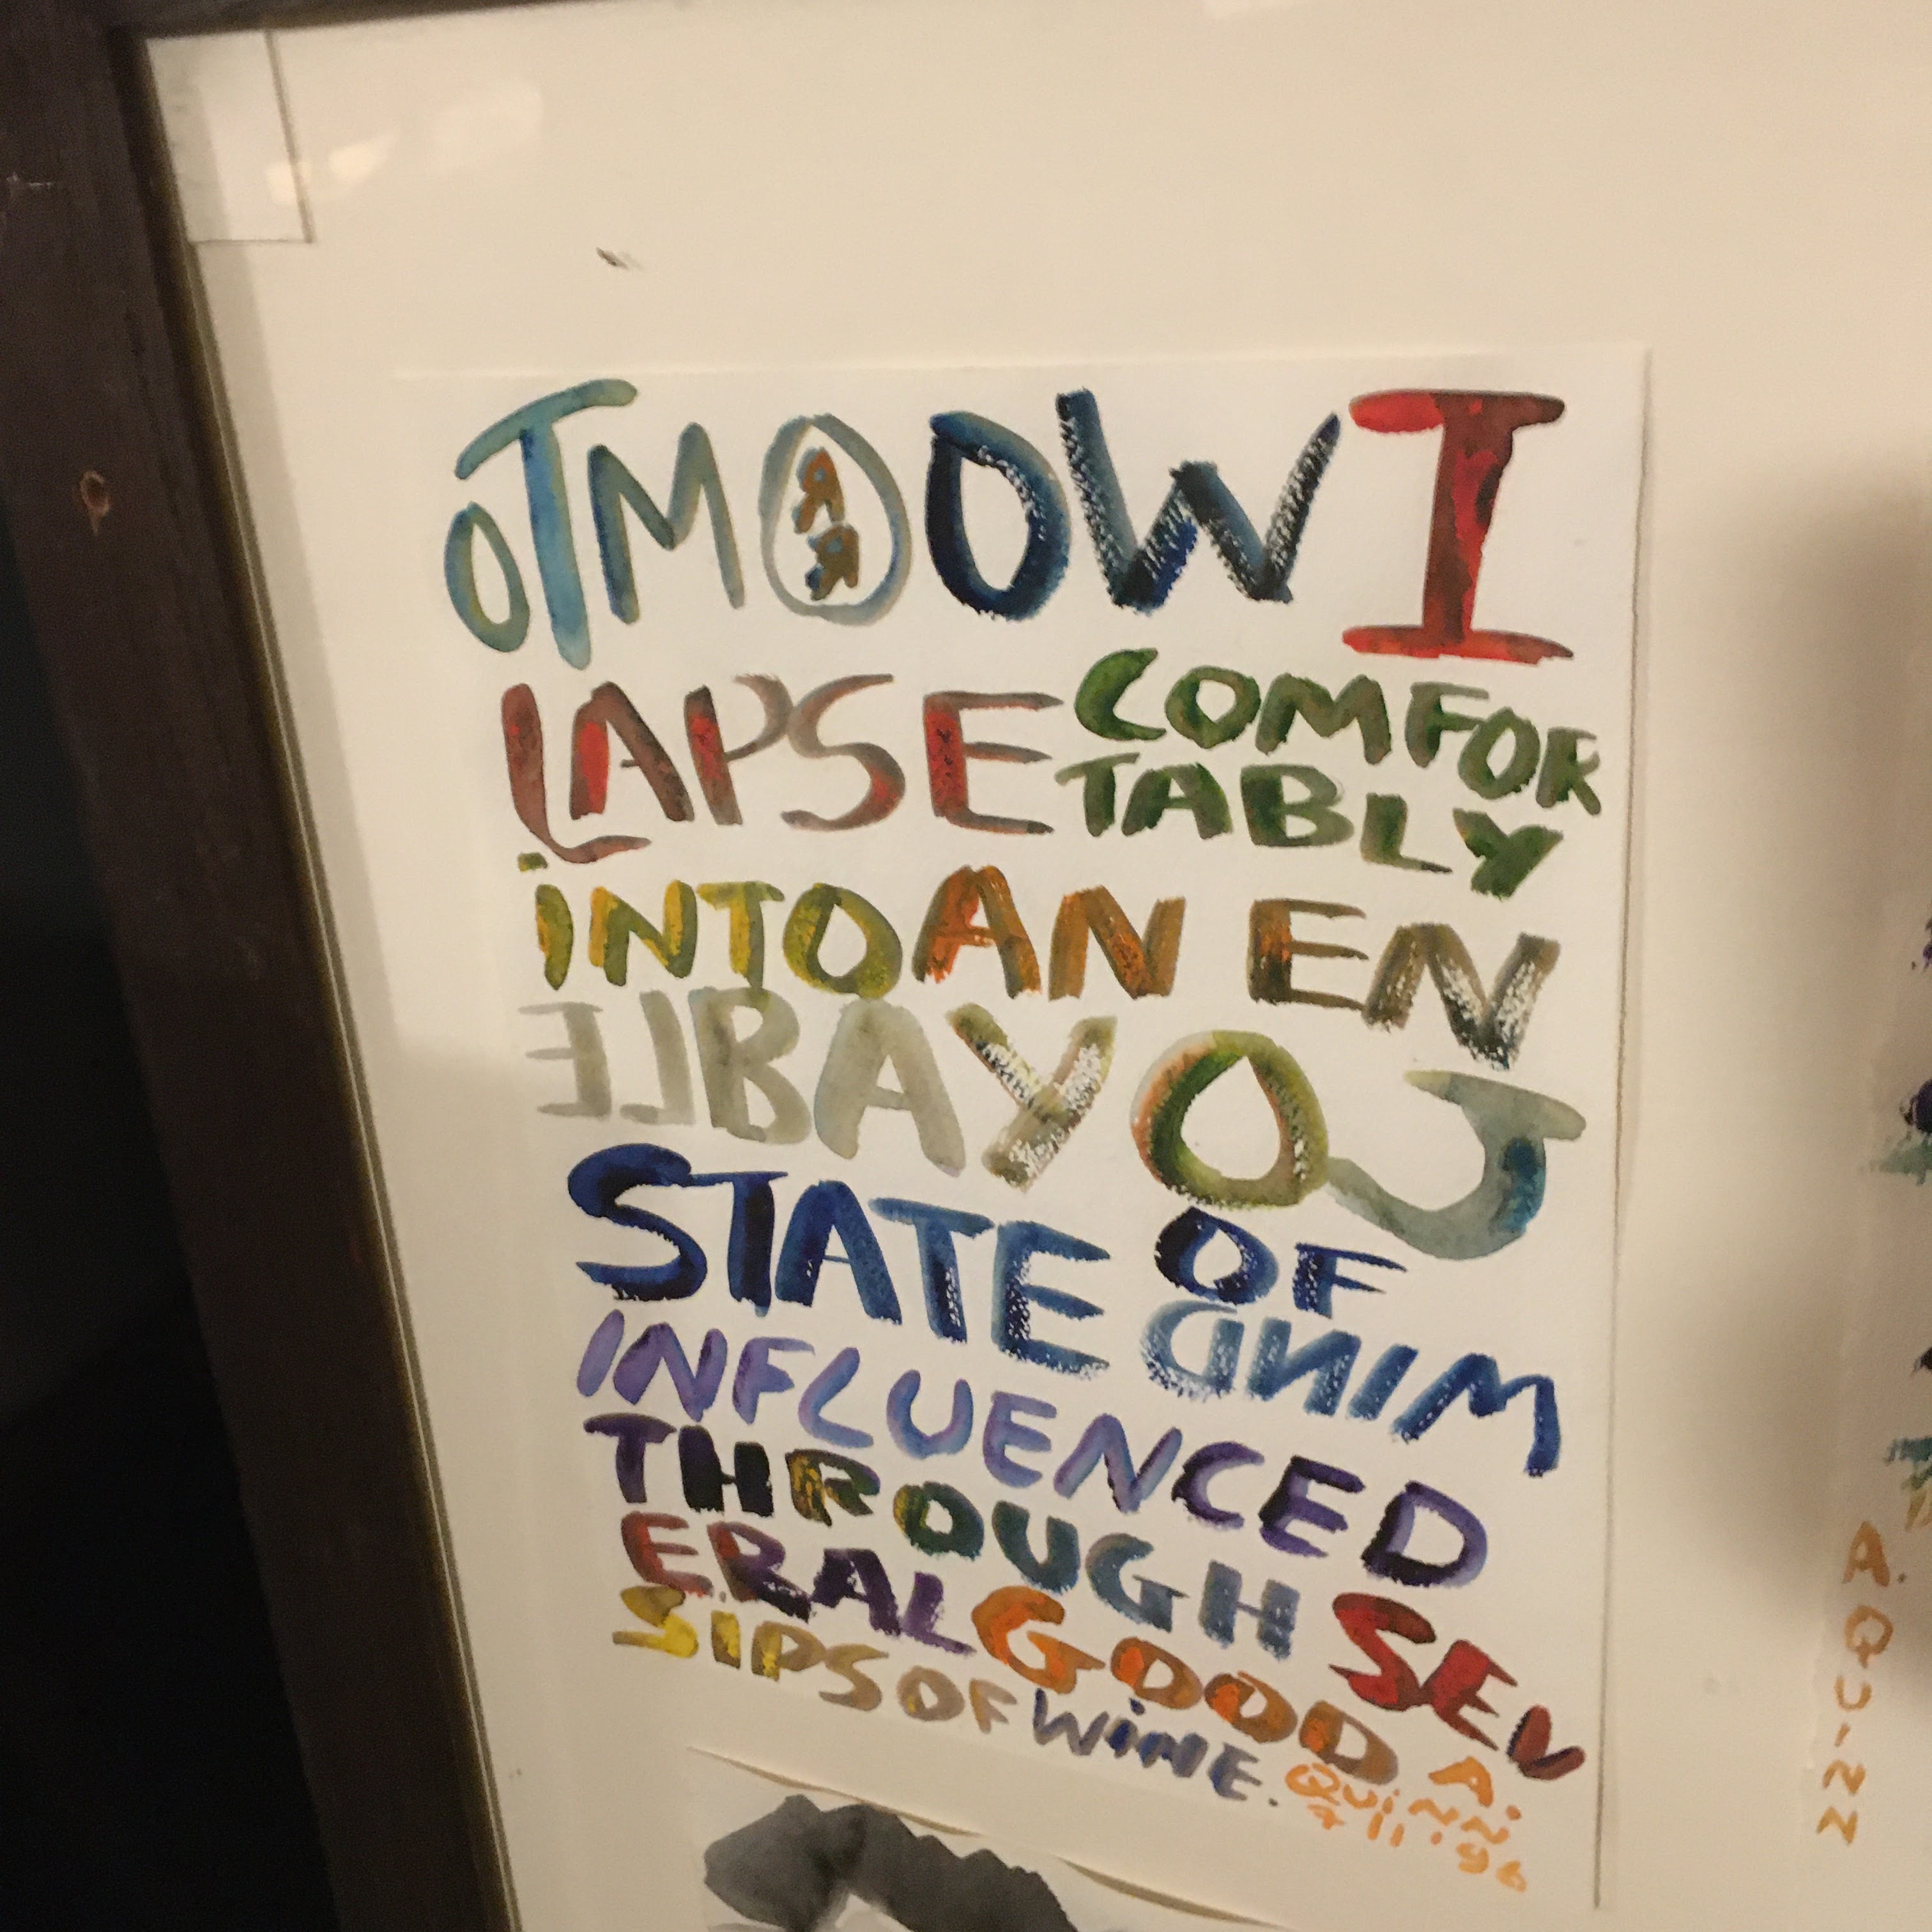 TOMORROW I
LAPSE COMFOR
TABLY
INTO AN EN
JOYABLE
STATE OF
MIND
INFLUENCED
THROUGH SEV
ERAL GOOD
SIPS OF WINE.
A.
QUINN
7 11 '96
A. QUINN